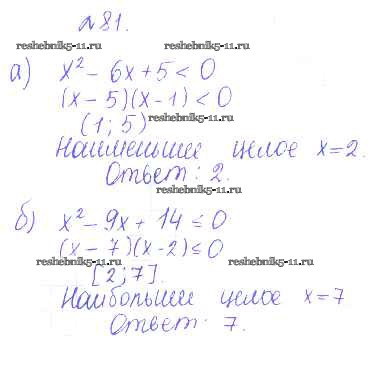 №81.
reshebnik5-11.ru reshebnik5-11.ru
а) x² - 6x + 5 < 0
(x - 5)(x - 1) < 0
(1; 5) reshebnik5-11.ru
Наименьшее целое x = 2.
Ответ: 2.
reshebnik5-11.ru
б) x² - 9x + 14 ≤ 0
(x - 7)(x - 2) ≤ 0
reshebnik5-11.ru reshebnik5-11.ru
[2; 7].
Наибольшее целое x = 7
Ответ: 7.